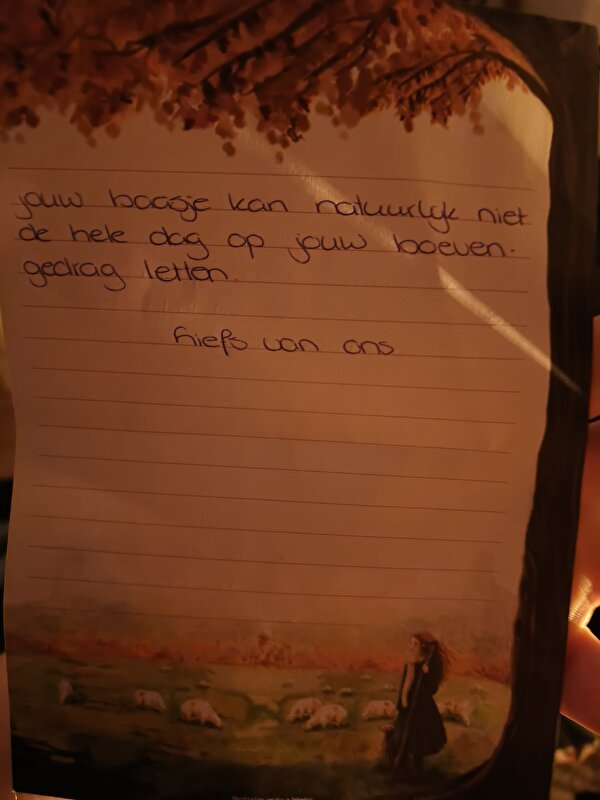 jouw baasje kan natuurlijk niet
de hele dag op jouw boeven-
gedrag letten.
liefs van ons